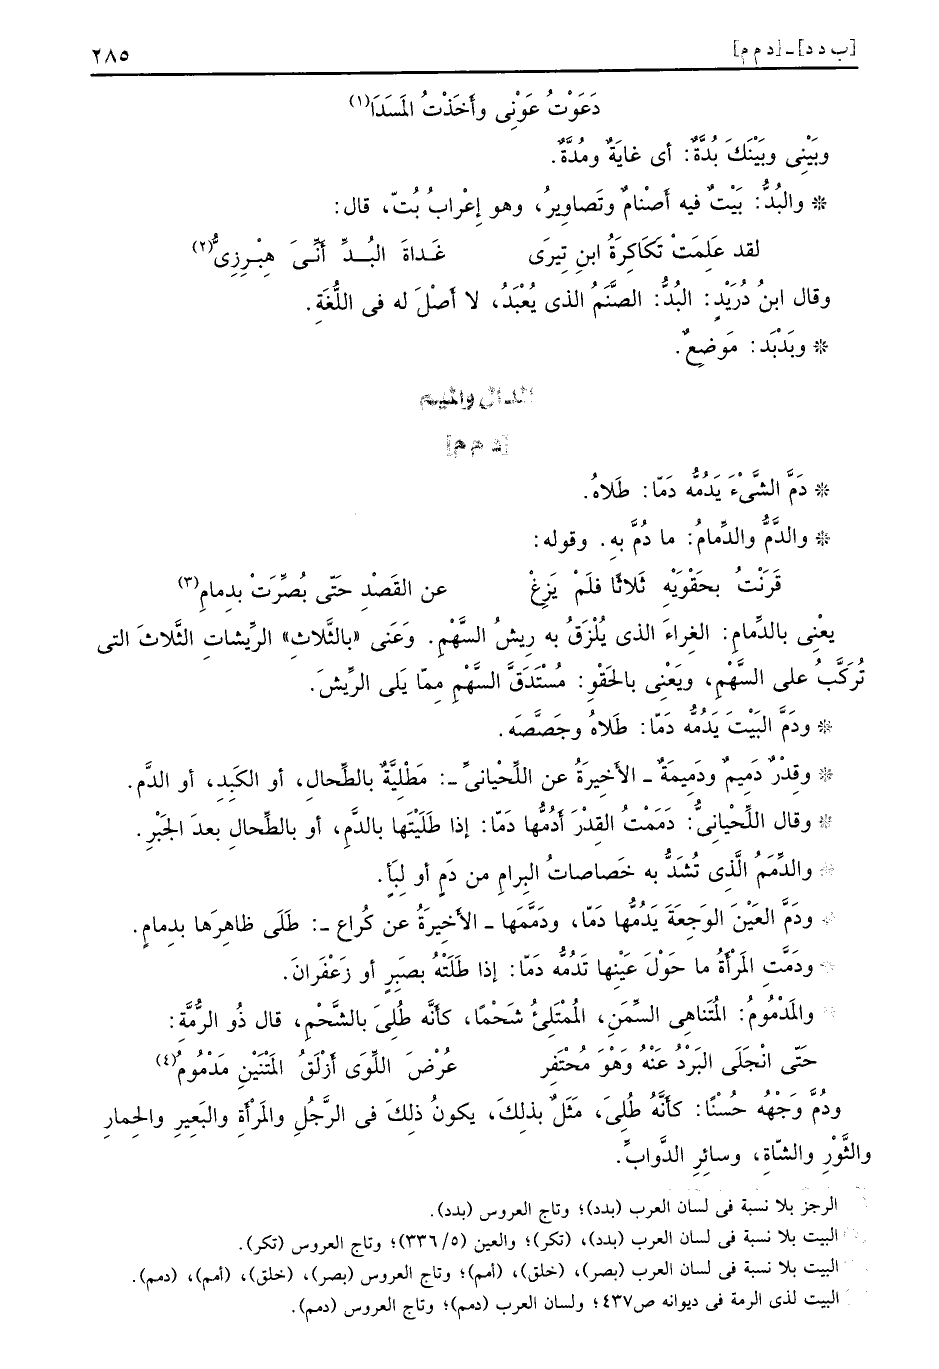 [ب د د] ـ [د م م] ٢٨٥
دَعَوْتُ عَوْنِى وأَخَذْتُ المَسَدَا(١)
وبَيْنِى وبَيْنَكَ بُدَّةٌ: أى غايَةٌ ومُدَّةٌ.
* والبُدُّ: بَيْتٌ فيه أصْنامٌ وتَصاويرُ، وهو إعْرابُ بُتّ، قال:
لقد عَلِمَتْ تَكَاكِرَةُ ابنِ تِيرَى غَداةَ البُدِّ أنِّىَ هِبْرِزِىُّ(٢)
وقال ابنُ دُرَيْدٍ: البُدُّ: الصَّنَمُ الذى يُعْبَدُ، لا أصْلَ له فى اللُّغَةِ.
* وبَدْبَد: مَوضِعٌ.
الدال والميم
[د م م]
* دَمَّ الشَّىْءَ يَدُمُّه دَمّا: طَلاهُ.
* والدَّمُّ والدِّمامُ: ما دُمَّ بِهِ. وقوله:
قَرَنْتُ بحَقْوَيْهِ ثَلاثًا فلَمْ يَزِغْ عن القَصْدِ حتَّى بُصِّرَتْ بدِمامِ(٣)
يعْنِى بالدِّمامِ: الغِراءَ الذى يُلْزَقُ به رِيشُ السَّهْمِ. وَعَنى «بالثَّلاثِ» الرِّيشاتِ الثَّلاثَ التى
تُرَكَّبُ على السَّهْمِ، ويَعْنِى بالحَقْوِ: مُسْتَدَقَّ السَّهْمِ مِمّا يَلى الرِّيشَ.
* ودَمَّ البَيْتَ يَدُمُّه دَمّا: طَلاهُ وجَصَّصَه.
* وقِدْرٌ دَمِيمٌ ودَمِيمَةٌ ـ الأخيرَةُ عن اللِّحْيانىِّ ـ: مَطْلِيَّةٌ بالطِّحالِ، أو الكَبِدِ، أو الدَّم.
* وقال اللِّحْيانىُّ: دَمَمْتُ القِدْرَ أدُمُّها دَمّا: إذا طَلَيْتَها بالدَّمِ، أو بالطِّحالِ بعدَ الجَبْرِ.
* والدِّمَمُ الَّذِى تُشَدُّ به خَصاصاتُ البِرامِ من دَمٍ أو لِبَأٍ.
* ودَمَّ العَيْنَ الوَجِعَةَ يَدُمُّها دَمّا، ودَمَّمَها ـ الأخيرَةُ عن كُراع ـ: طَلَى ظاهِرَها بدِمامٍ.
* ودَمَّتِ المَرْأةُ ما حَوْلَ عَيْنِها تَدُمُّه دَمّا: إذا طَلَتْهُ بصَبِرٍ أو زَعْفَرانَ.
* والمَدْمُومُ: المُتَناهِى السِّمَنِ، المُمْتَلِئُ شَحْمًا، كأنَّه طُلِىَ بالشَّحْمِ، قال ذُو الرُّمَّةِ:
حَتّى انْجَلَى البَرْدُ عَنْهُ وَهْوَ مُحْتَفِر عُرْضَ اللِّوَى أزْلَقُ المَتْنَيْنِ مَدْمُومُ(٤)
ودُمَّ وَجْهُه حُسْنًا: كأنَّهُ طُلِىَ، مَثَلٌ بذلِكَ، يكونُ ذلِكَ فى الرَّجُلِ والمَرْأةِ والبَعِيرِ والحِمارِ
والثَّوْرِ والشّاةِ، وسائرِ الدَّوابِّ.
الرجز بلا نسبة فى لسان العرب (بدد)؛ وتاج العروس (بدد).
البيت بلا نسبة فى لسان العرب (بدد)، (تكر)؛ والعين (٣٣٦/٥)؛ وتاج العروس (تكر).
البيت بلا نسبة فى لسان العرب (بصر)، (خلق)، (أمم)؛ وتاج العروس (بصر)، (خلق)، (أمم)، (دمم).
البيت لذى الرمة فى ديوانه ص٤٣٧؛ ولسان العرب (دمم)؛ وتاج العروس (دمم).